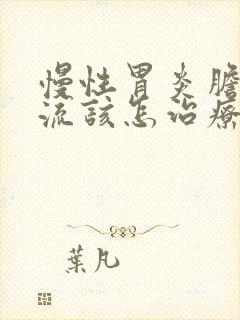 慢性胃炎膽
流該怎治療
葉凡